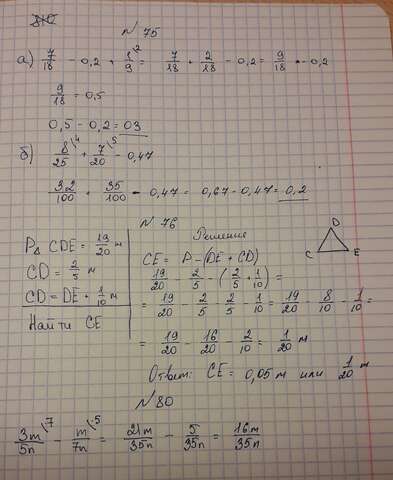 N 75
а) 7/18 - 0,2 + 1/9 \2 = 7/18 + 2/18 - 0,2 = 9/18 - 0,2
9/18 = 0,5
0,5 - 0,2 = 03
б) 8/25 \4 + 7/20 \5 - 0,47
32/100 + 35/100 - 0,47 = 0,67 - 0,47 = 0,2
N 76
P△ CDE = 19/20 м
CD = 2/5 м
CD = DE + 1/10 м
Найти CE
Решение
CE = P - (DE + CD)
19/20 - 2/5 - (2/5 + 1/10) =
= 19/20 - 2/5 - 2/5 - 1/10 = 19/20 - 8/10 - 1/10 =
= 19/20 - 16/20 - 2/10 = 1/20 м
D
C E
Ответ: CE = 0,05 м или 1/20 м
N 80
3m/5n \7 - m/7n \5 = 21m/35n - 5/35n = 16m/35n